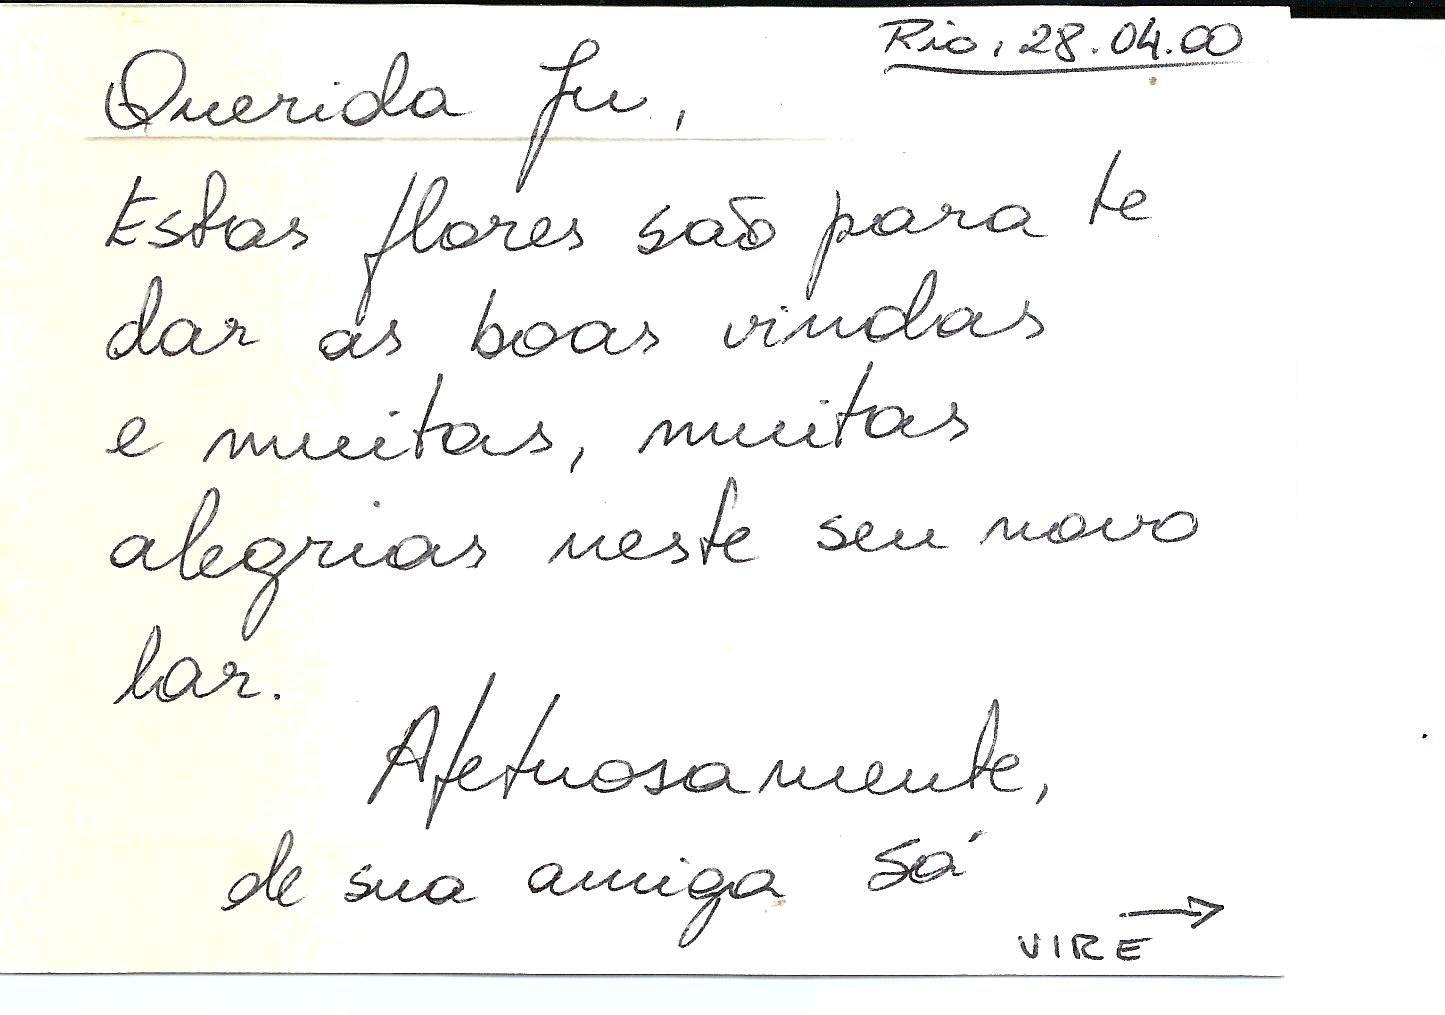 Rio, 28.04.00
Querida Ju,
Estas flores são para te
dar as boas vindas
e muitas, muitas
alegrias neste seu novo
lar.
Afetuosamente,
de sua amiga Sá
VIRE →